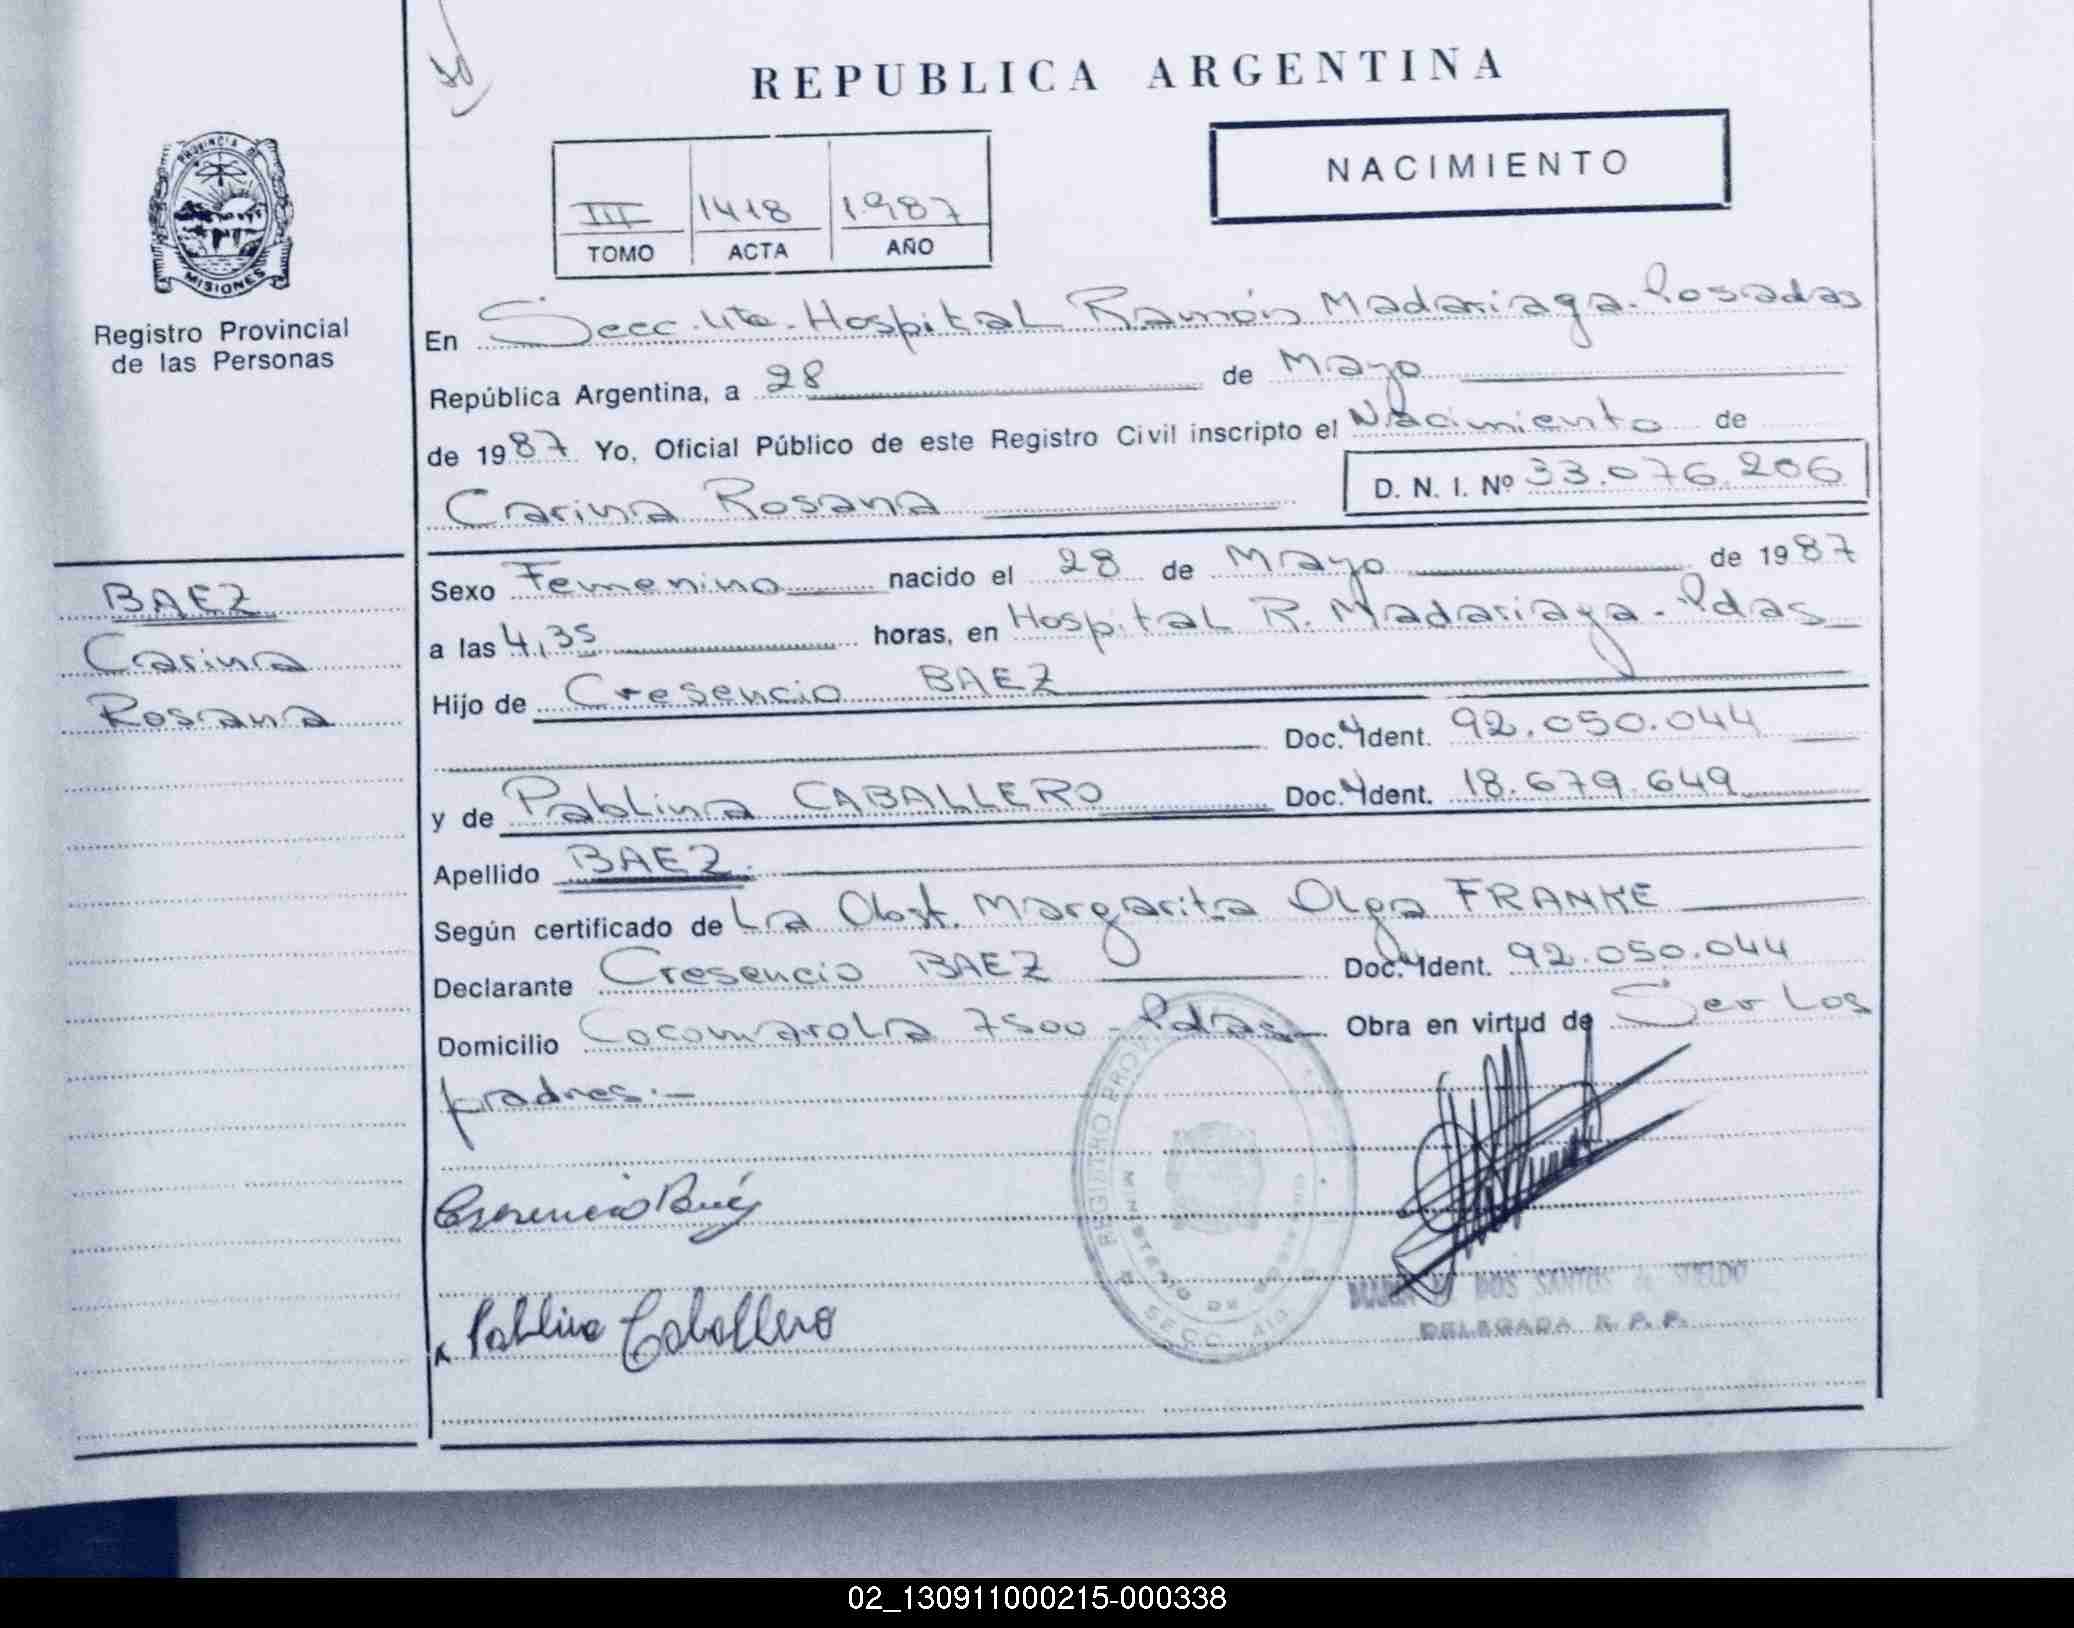 REPUBLICA ARGENTINA
NACIMIENTO
III 1418 1987
TOMO ACTA AÑO
PROVINCIA DE
MISIONES
Registro Provincial
de las Personas
En Secc. 4ta. Hospital Ramón Madariaga. Posadas
República Argentina, a 28 de Mayo
de 1987 Yo, Oficial Público de este Registro Civil inscripto el Nacimiento de
Carina Rosana D. N. I. Nº 33.076.206
BAEZ
Carina
Rosana
Sexo Femenino nacido el 28 de Mayo de 1987
a las 4,35 horas, en Hospital R. Madariaga - Pdas
Hijo de Cresencio BAEZ
Doc. Ident. 92.050.044
y de Pablina CABALLERO Doc. Ident. 18.679.649
Apellido BAEZ.
Según certificado de La Obst. Margarita Olga FRANKE
Declarante Cresencio BAEZ Doc. Ident. 92.050.044
Domicilio Cocomarola 7500 - Pdas Obra en virtud de Ser Los
padres.-
Cresencio Baéz
Pablina Caballero
REGISTRO PROV
MINISTERIO DE
SECC. 4ta
DOS SANTOS de SUELDO
DELEGADA R. P. P.
02_130911000215-000338